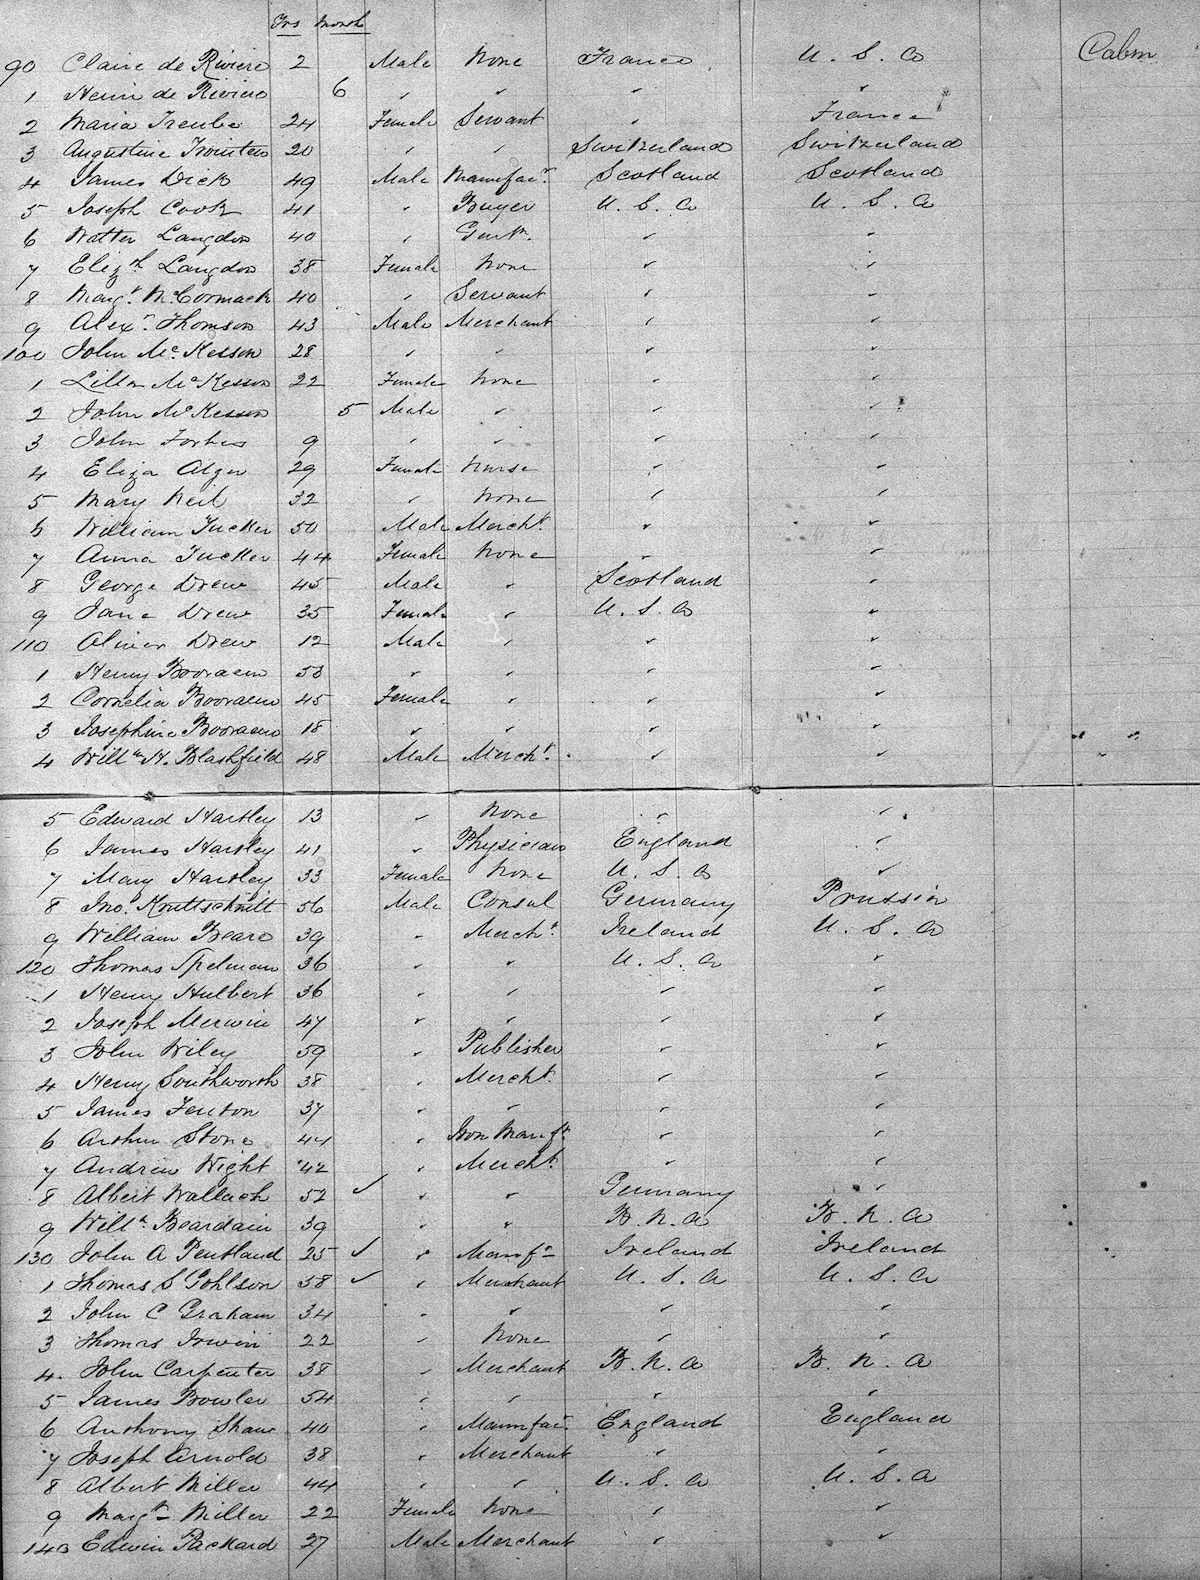 Yrs Month
90 Claire de Riviere 2 Male None France U. S. A Cabin
1 Henri de Riviere 6 " " " "
2 Maria Treube 24 Female Servant " France
3 Augustine 20 " " Switzerland Switzerland
4 James Dick 49 Male Manufacr. Scotland Scotland
5 Joseph Cook 41 " Buyer U. S. A U. S. A
6 Walter Langdon 40 " Gentn. " "
7 Elizh Langdon 38 Female None " "
8 Margt. McCormack 40 " Servant " "
9 Alexr. Thomson 43 Male Merchant " "
100 John McKesson 28 " " " "
1 Lilla McKesson 22 Female None " "
2 John McKesson 5 Male " " "
3 John Forbes 9 " " " "
4 Eliza Alger 29 Female Nurse " "
5 Mary Neil 32 " None " "
6 William Tucker 50 Male Mercht. " "
7 Anna Tucker 44 Female None " "
8 George Drew 45 Male " Scotland "
9 Jane Drew 35 Female " U. S. A "
110 Oliver Drew 12 Male " " "
1 Henry Booraem 53 " " " "
2 Cornelia Booraem 45 Female " " "
3 Josephine Booraem 18 " " " "
4 Willm H. Blashfield 48 Male Mercht. " "
5 Edward Hartley 13 " None " "
6 James Hartley 41 " Physician England "
7 Mary Hartley 33 Female None U. S. A "
8 Jno. Kruttschnitt 56 Male Consul Germany Prussia
9 William Beare 39 " Mercht. Ireland U. S. A
120 Thomas Spelman 36 " " U. S. A "
1 Henry Hulbert 36 " " " "
2 Joseph Merwin 47 " " " "
3 John Wiley 59 " Publisher " "
4 Henry Southworth 38 " Mercht. " "
5 James Fenton 37 " " " "
6 Arthur Stone 44 " Iron Manfr. " "
7 Andrew Wight 42 " Mercht. " "
8 Albert Wallach 52 ✓ " " Germany "
9 Willm. Beardain 39 " " B. N. A B. N. A
130 John A Pentland 25 ✓ " Manfr Ireland Ireland
1 Thomas S Gohlson 58 ✓ " Merchant U. S. A U. S. A
2 John C Graham 34 " " " "
3 Thomas Irwin 22 " None " "
4. John Carpenter 38 " Merchant B. N. A B. N. A
5 James Bowler 54 " " " "
6 Anthony Shaw 40 " Manufacr. England England
7 Joseph Arnold 38 " Merchant " "
8 Albert Miller 44 " " U. S. A U. S. A
9 Margt Miller 22 Female None " "
140 Edwin Packard 27 Male Merchant " "